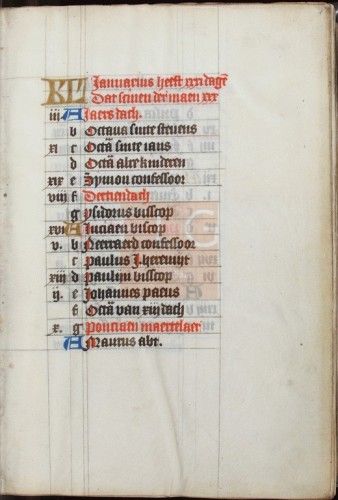 KL Januarius heeft xxxi dagē
Dat scijn der maen xxx
iii A Jaersdach.
b Octava sinte stevens
xi c Octā sinte jans
d Octā alre kinderen
xix e Symon confessoor
viii f Dertiendach
g ysidorus visscop
xvi A Luciaen viscop
v. b confessoor
c paulus j. heremijt
xiii d pauliin visscop
ij. e Johannes paeus
f Octā van xiijdach
x. g Ponciaen maertelaer
A Maurus abt.